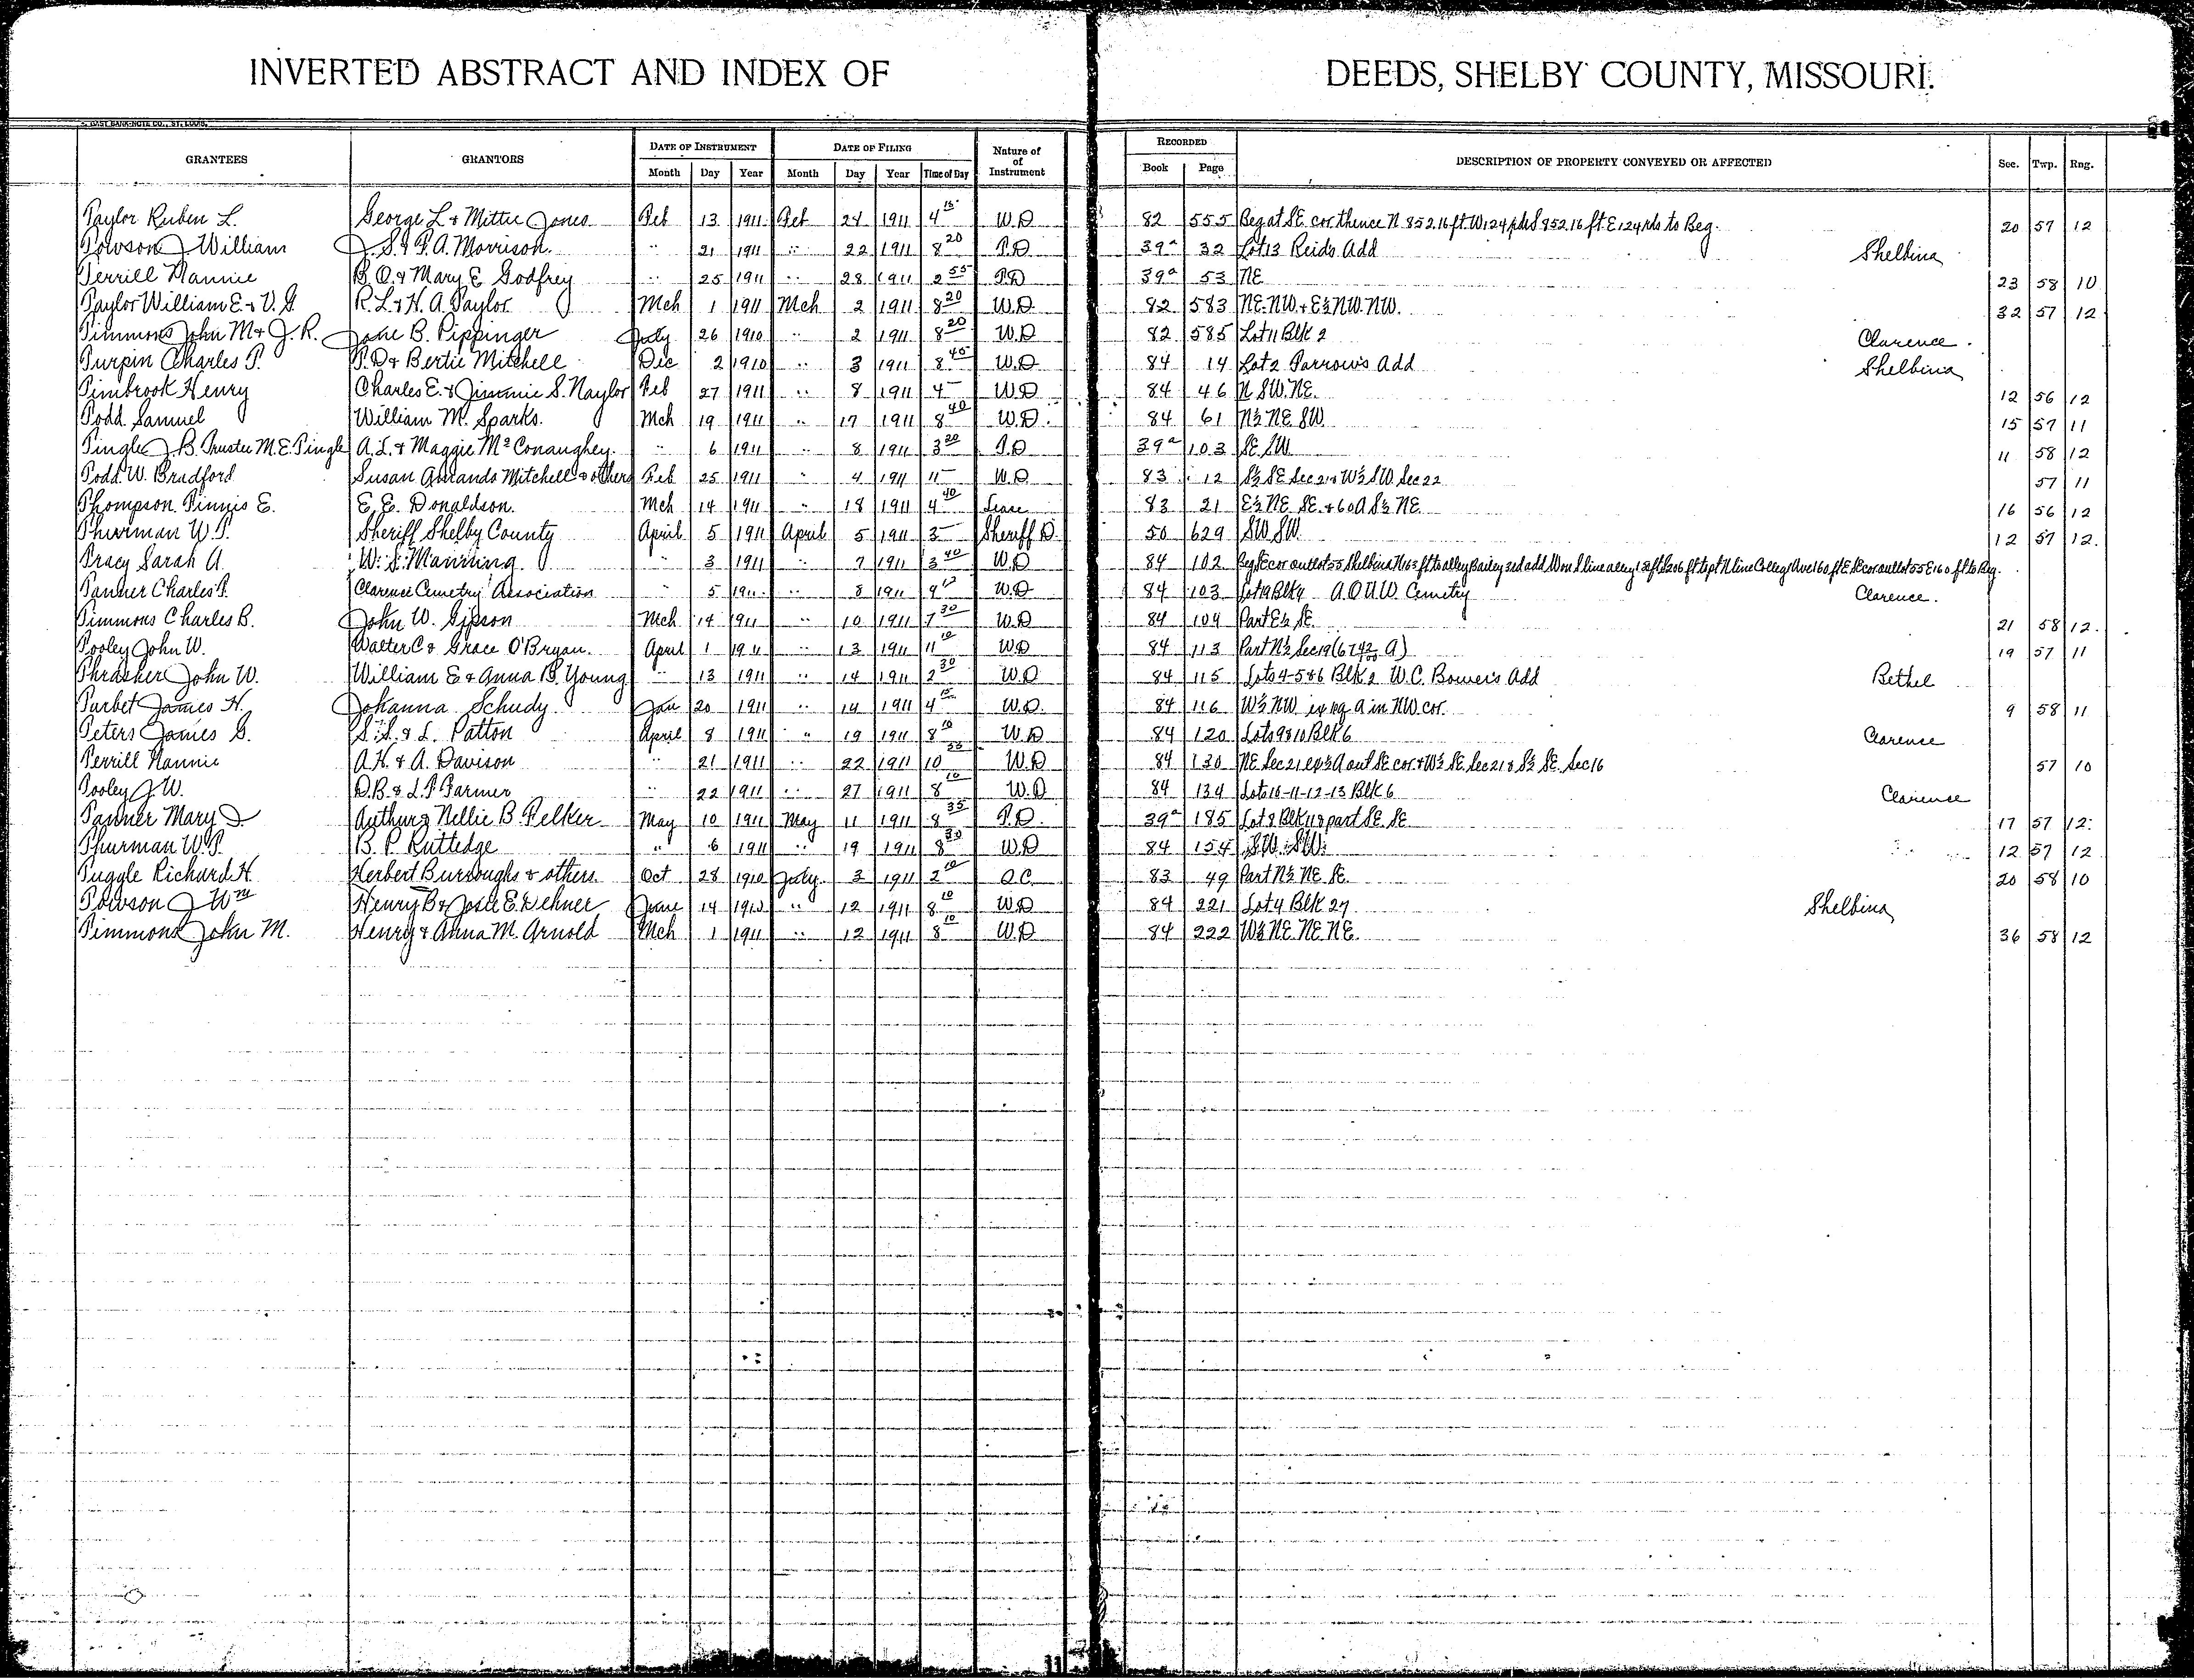 INVERTED ABSTRACT AND INDEX OF DEEDS, SHELBY COUNTY, MISSOURI.
GRANTEES GRANTORS DATE OF INSTRUMENT DATE OF FILING Nature of of Instrument RECORDED DESCRIPTION OF PROPERTY CONVEYED OR AFFECTED Sec. Twp. Rng.
Month Day Year Month Day Year Time of Day Book Page
Taylor Ruben L. George L & Mittie Jones Feb 13 1911 Feb 24 1911 4 15 W.D 82 555 Beg at SE cor thence N 852.16 ft. W 124 rds S 852.16 ft. E 124 rds to Beg. 20 57 12
Towson J William J. S. & F. A. Morrison. " 21 1911 " 22 1911 8 20 T.D 39a 32 Lot 13 Reids Add Shelbina
Terrill Nannie B. O. & Mary E Godfrey " 25 1911 " 28 1911 2 55 T.D 39a 53 NE 23 58 10
Taylor William E & V. G R. L. & H. A. Taylor Mch 1 1911 Mch 2 1911 8 20 W.D. 82 583 NE. NW. & E½ NW. NW. 32 57 12
Timmons John M & J. R. Jane B. Pippinger July 26 1910 " 2 1911 8 20 W.D 82 585 Lot 11 Blk 2 Clarence.
Turpin Charles T. T. D & Bertie Mitchell Dec 2 1910 " 3 1911 8 45 W.D. 84 14 Lot 2 Parrow's Add Shelbina
Timbrook Henry Charles E. & Jimmie S. Naylor Feb 27 1911 " 8 1911 4 W.D 84 46 N SW. NE. 12 56 12
Todd Samuel William M. Sparks. Mch 19 1911 " 17 1911 8 40 W.D. 84 61 N½ NE SW. 15 57 11
Tingle J. B. Trustee M. E. Tingle A. L. & Maggie McConaughey. " 6 1911 " 8 1911 3 20 T.D 39a 103 SE SW. 11 58 12
Todd W. Bradford Susan Amanda Mitchell & others Feb 25 1911 " 4 1911 11 W.D. 83 12 S½ SE Sec 21 & W½ SW Sec 22 57 11
Thompson Tinnis E. E. E. Donaldson. Mch 14 1911 " 18 1911 4 40 Lease 83 21 E½ NE SE. & 60 A S½ NE. 16 56 12
Thurman W. T. Sheriff Shelby County April 5 1911 April 5 1911 3 Sheriff D. 50 629 SW SW. 12 57 12.
Tracy Sarah A. W. S. Manning. " 3 1911 " 7 1911 3 40 W.D 84 102 Beg SE cor outlot 55 Shelbina N 163 ft to alley Bailey 3rd add W on S line alley
Tanner Charles T. Clarence Cemetry Association " 5 1911 " 8 1911 9 W.D 84 103 Lot 19 Blk 4 A.O.U.W. Cemetry Clarence.
Timmons Charles B. John W. Gipson Mch 14 1911 " 10 1911 7 30 W.D 84 104 Part E½ SE. 21 58 12.
Tooley John W. Walter C & Grace O'Bryan. April 1 1911 " 13 1911 11 10 W.D 84 113 Part N½ Sec 19 (67 42/100 A) 19 57 11
Thrasher John W. William E & Anna B. Young " 13 1911 " 14 1911 2 30 W.D 84 115 Lots 4-5 & 6 Blk 2 W. C. Bower's Add Bethel
Turbet James H. Johanna Schudy Jan 20 1911 " 14 1911 4 15 W.D. 84 116 W½ NW. in NW cor. 9 58 11
Teters James G. S. L. & L. Patton April 8 1911 " 19 1911 8 10 W.D 84 120 Lots 9 & 10 Blk 6 Clarence
Terrill Nannie A. H. & A. Davison " 21 1911 " 22 1911 10 55 W.D 84 130 NE Sec 21 ex ½ A out SE cor. & W½ SE. Sec 21 & S½ SE. Sec 16 57 10
Tooley J. W. D. B. & L. P. Farmer " 22 1911 " 27 1911 8 10 W.D 84 134 Lots 10-11-12-13 Blk 6 Clarence
Tanner Mary J. Arthur & Nellie B. Felker May 10 1911 May 11 1911 8 35 T.D. 39a 185 Lot 8 Blk 11 & part SE. SE 17 57 12.
Thurman W. T. B. P. Ruttedge " 6 1911 " 19 1911 8 30 W.D 84 154 SW. SW. 12 57 12
Tuggle Richard H. Herbert Burroughs & others. Oct 28 1910 July 3 1911 2 10 Q.C. 83 49 Part N½ NE SE. 20 58 10
Towson J Wm Henry B & Josie E. Dehner June 14 1910 " 12 1911 8 10 W.D 84 221 Lot 4 Blk 27 Shelbina
Timmons John M. Henry & Anna M. Arnold Mch 1 1911 " 12 1911 8 10 W.D 84 222 W½ NE. NE. NE. 36 58 12